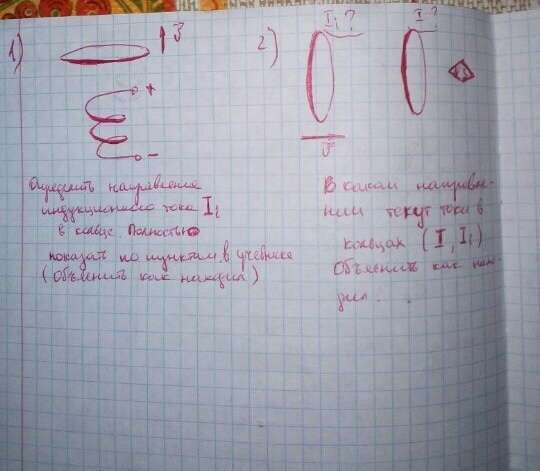 1)
v
+
-
Определить направление
индукционного тока Ii
в кольце. Полностью
показать по пунктам в учебнике
(Объяснить как находил)
2)
Ii?
I?
v
В каком направле-
нии текут токи в
кольцах (I, Ii)
Объяснить как нахо
дил.